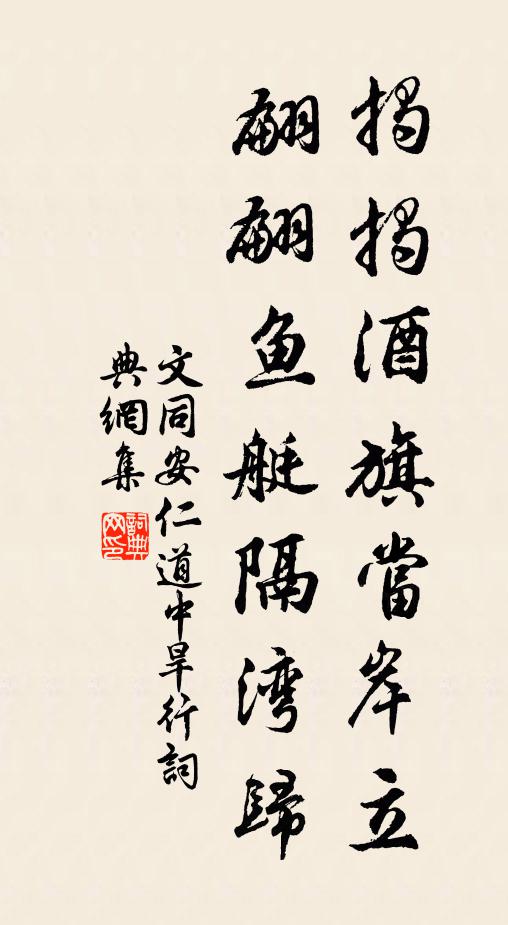 揭揭酒旗當岸立
翩翩鱼艇隔湾歸
文同安仁道中旱行詞
典網集
詞典网印